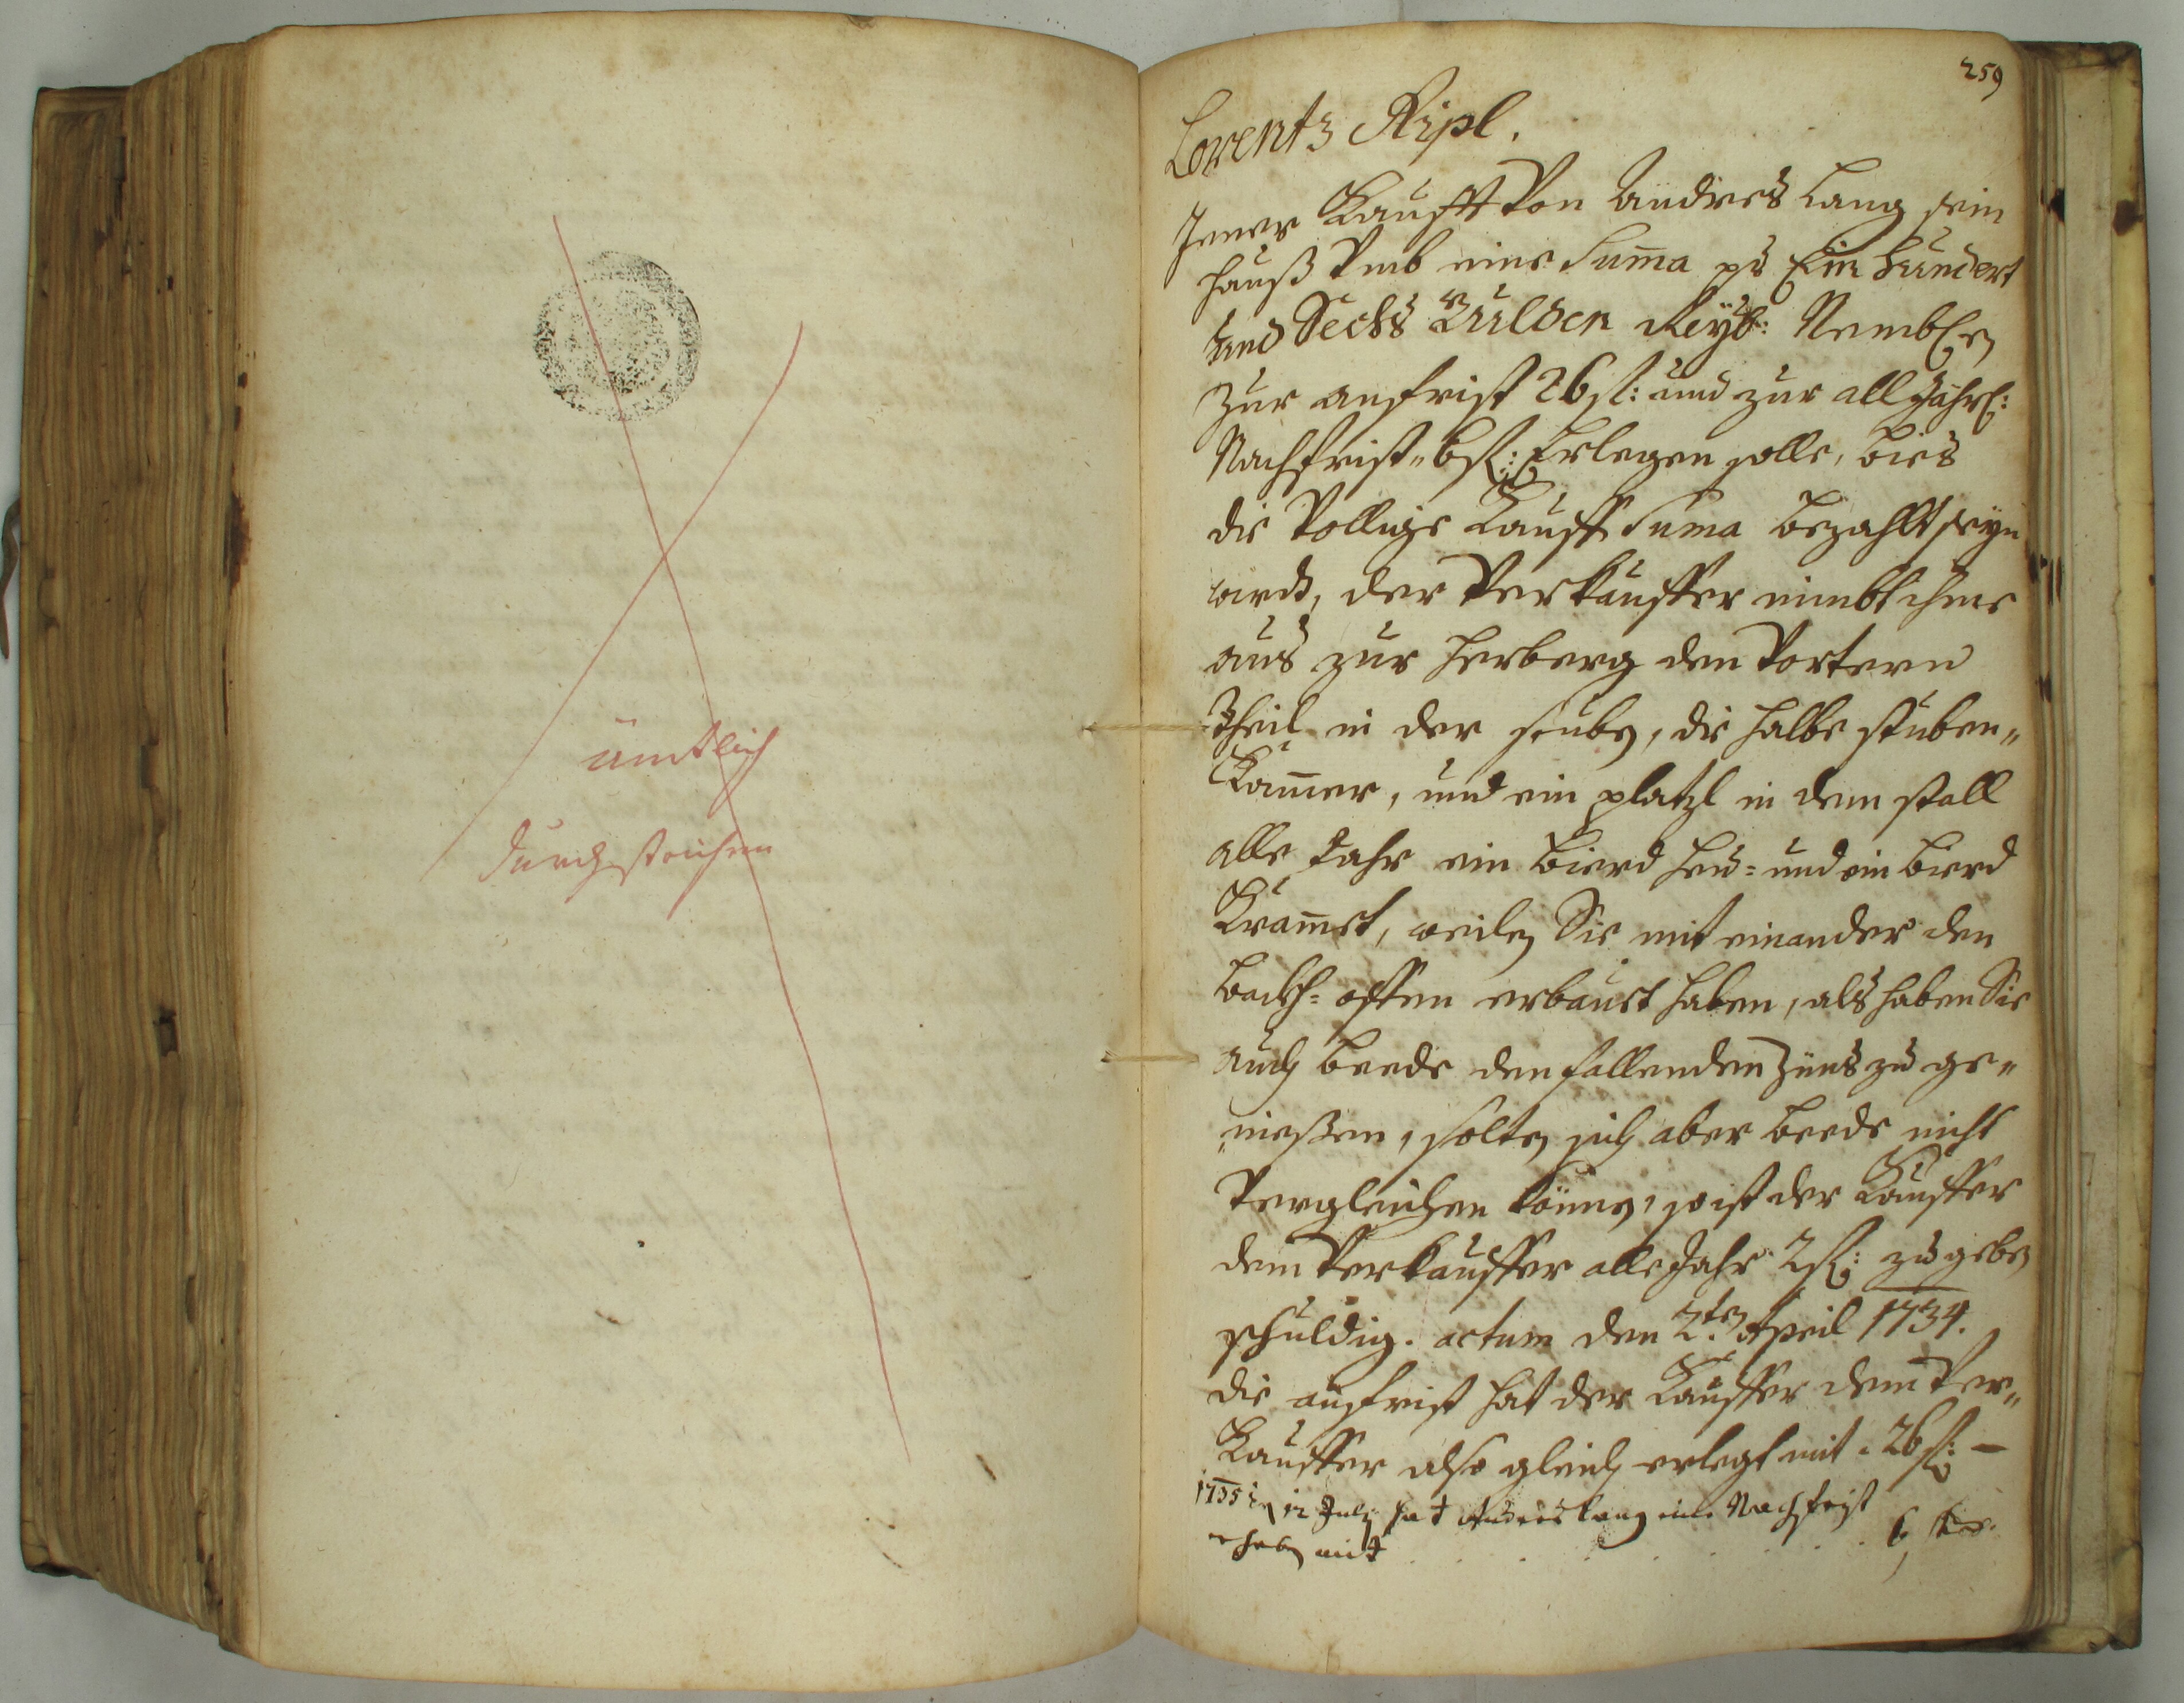 ämtlich
durchstrichen
259
Lorentz Ripl.
Jener Kaufft Von Andres Lang sein
hauß Vmb eine Suma pr Ein hundert
und Sechs Gulden Reyß: Nemblen
Zur anfrist 26 fl: und zur all Jährl:
Nachfrist „ 6 fl: Erlegen solle, bies
die Vollige Kauff Suma bezahlt seyn
wirdt, der Verkauffer nimbt ihme
aus zur Herberg den Vortern
Theil in der stuben, die halbe stuben„
Kamer, und ein platzl in dem stall
alle Jahr ein Bierd heu= und ein Bierd
Kramet, weilen Sie mit einander den
Backh= offen erbauet haben, als haben Sie
auch beede den fallenden Züns zu ge„
„nießen, solten sich aber beede nicht
Vergleichen könen, so ist der Kauffer
dem Verkauffer alle Jahr 2 fl: zu geben
schuldig. actum den 2ten April 1734.
die anfrist hat der Kauffer dem Ver„
Kauffer also gleich erlegt mit . 26 fl: —
1735 den 12 July hat Andres Lang eine Nachfrist
erheben mit . . . . . . . . 6